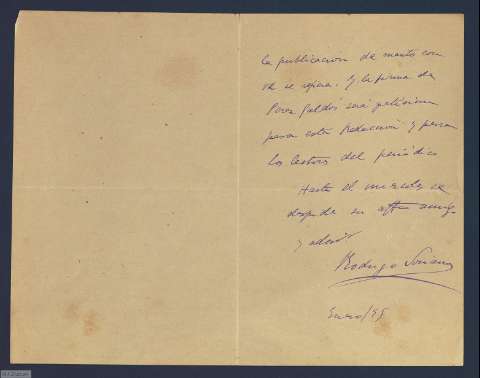 la publicación de manto con
vd. se refiere. Y la firma de
Perez Galdós será
para esta Redacción y para
los lectores del periódico
Hasta el miercoles se
despide su affmo amigo
y
Rodrigo Soriano
Enero/98